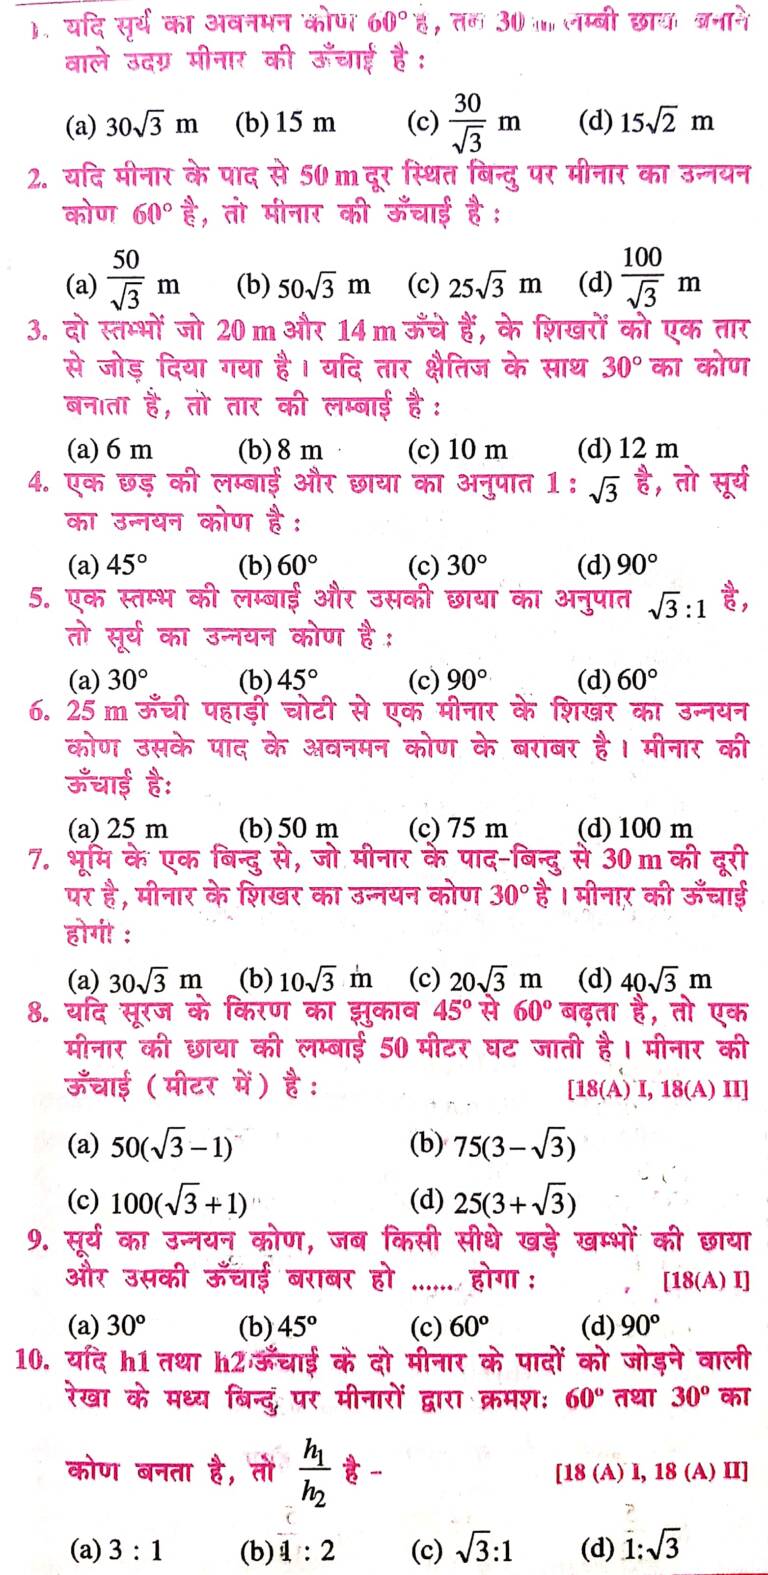 1. यदि सूर्य का अवनमन कोण 60° है, तब 30 m लम्बी छाया बनाने
वाले उदग्र मीनार की ऊँचाई है :
(a) 30√3 m (b) 15 m (c) 30/√3 m (d) 15√2 m
2. यदि मीनार के पाद से 50 m दूर स्थित बिन्दु पर मीनार का उन्नयन
कोण 60° है, तो मीनार की ऊँचाई है :
(a) 50/√3 m (b) 50√3 m (c) 25√3 m (d) 100/√3 m
3. दो स्तम्भों जो 20 m और 14 m ऊँचे हैं, के शिखरों को एक तार
से जोड़ दिया गया है। यदि तार क्षैतिज के साथ 30° का कोण
बनाता है, तो तार की लम्बाई है :
(a) 6 m (b) 8 m (c) 10 m (d) 12 m
4. एक छड़ की लम्बाई और छाया का अनुपात 1 : √3 है, तो सूर्य
का उन्नयन कोण है :
(a) 45° (b) 60° (c) 30° (d) 90°
5. एक स्तम्भ की लम्बाई और उसकी छाया का अनुपात √3 : 1 है,
तो सूर्य का उन्नयन कोण है :
(a) 30° (b) 45° (c) 90° (d) 60°
6. 25 m ऊँची पहाड़ी चोटी से एक मीनार के शिखर का उन्नयन
कोण उसके पाद के अवनमन कोण के बराबर है। मीनार की
ऊँचाई है:
(a) 25 m (b) 50 m (c) 75 m (d) 100 m
7. भूमि के एक बिन्दु से, जो मीनार के पाद-बिन्दु से 30 m की दूरी
पर है, मीनार के शिखर का उन्नयन कोण 30° है। मीनार की ऊँचाई
होगी :
(a) 30√3 m (b) 10√3 m (c) 20√3 m (d) 40√3 m
8. यदि सूरज के किरण का झुकाव 45° से 60° बढ़ता है, तो एक
मीनार की छाया की लम्बाई 50 मीटर घट जाती है। मीनार की
ऊँचाई (मीटर में) है : [18(A) I, 18(A) II]
(a) 50(√3 – 1) (b) 75(3 – √3)
(c) 100(√3 + 1) (d) 25(3 + √3)
9. सूर्य का उन्नयन कोण, जब किसी सीधे खड़े खम्भों की छाया
और उसकी ऊँचाई बराबर हो ...... होगा : [18(A) I]
(a) 30° (b) 45° (c) 60° (d) 90°
10. यदि h1 तथा h2 ऊँचाई के दो मीनार के पादों को जोड़ने वाली
रेखा के मध्य बिन्दु पर मीनारों द्वारा क्रमशः 60° तथा 30° का
कोण बनता है, तो h₁/h₂ है - [18 (A) I, 18 (A) II]
(a) 3 : 1 (b) 1 : 2 (c) √3:1 (d) 1:√3